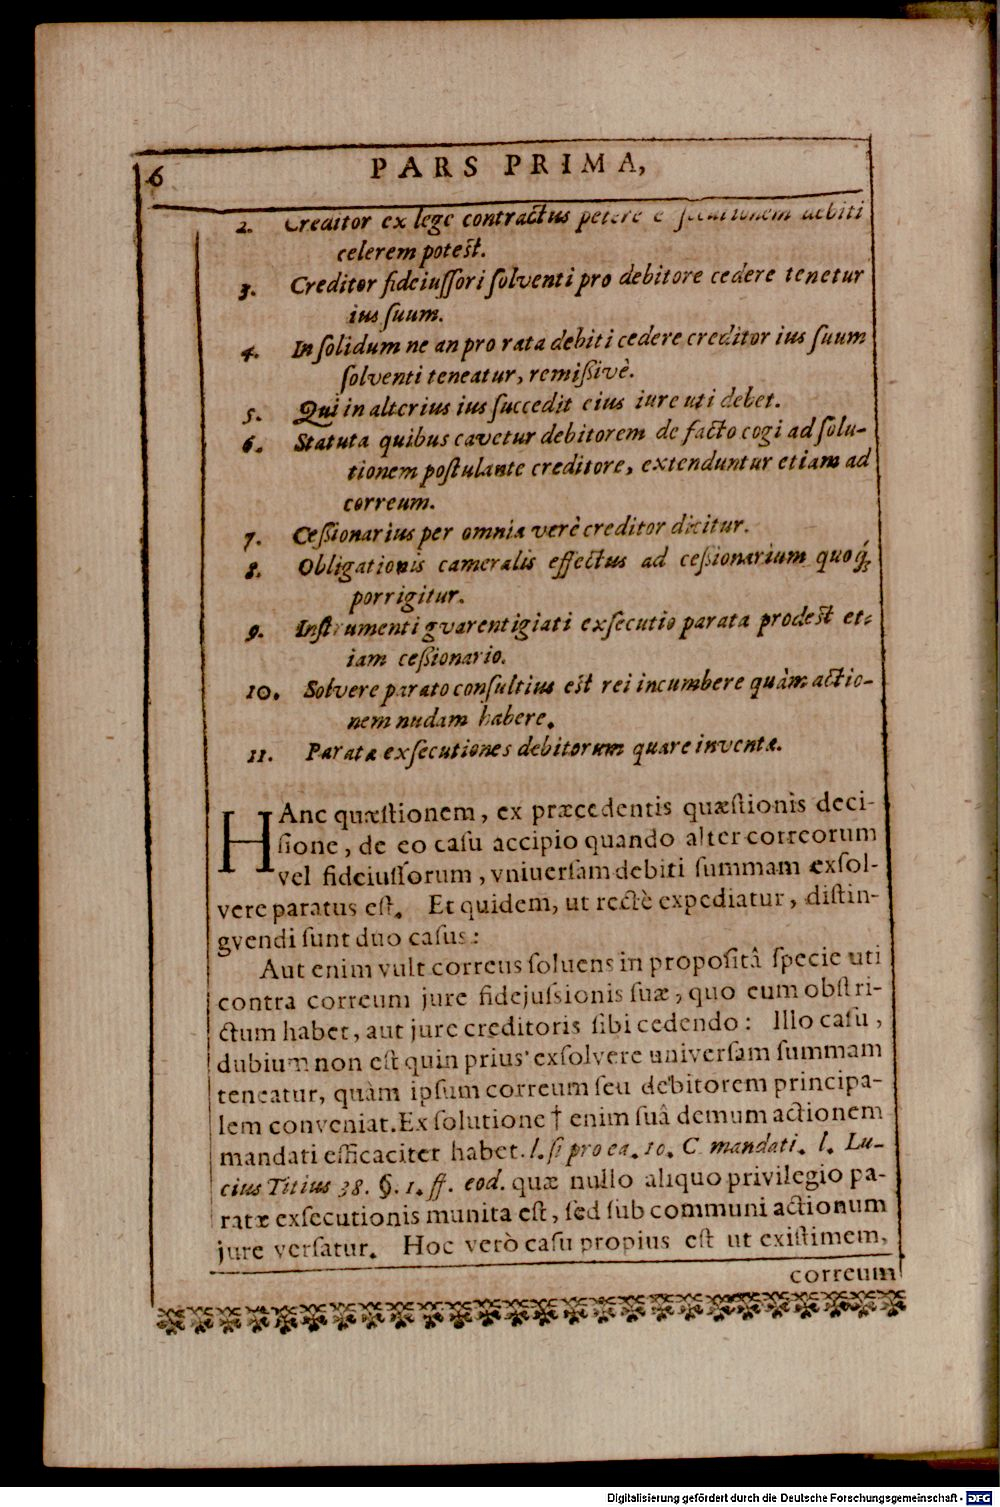 6 PARS PRIMA,
2. Creditor ex lege contractus petere debiti
celerem potest.
3. Creditor fideiussori solventi pro debitore cedere tenetur
ius suum.
4. In solidum ne an pro rata debiti cedere creditor ius suum
solventi teneatur, remissivè.
5. Qui in alterius ius succedit eius iure uti debet.
6. Statuta quibus cavetur debitorem de facto cogi ad solu-
tionem postulante creditore, extenduntur etiam ad
correum.
7. Cessionarius per omnia verè creditor dicitur.
8. Obligationis cameralis effectus ad cessionarium quoq́;
porrigitur.
9. Instrumenti gvarentigiati exsecutio parata prodest et-
iam cessionario.
10. Solvere parato consultius est rei incumbere quàm actio-
nem nudam habere.
11. Paratæ exsecutiones debitorum quare inventæ.
HAnc quæstionem, ex præcedentis quæstionis deci-
sione, de eo casu accipio quando alter correorum
vel fideiussorum, vniuersam debiti summam exsol-
vere paratus est. Et quidem, ut rectè expediatur, distin-
gvendi sunt duo casus:
Aut enim vult correus soluens in propositâ specie uti
contra correum jure fidejussionis suæ, quo eum obstri-
ctum habet, aut jure creditoris sibi cedendo: Illo casu,
dubium non est quin prius exsolvere universam summam
teneatur, quàm ipsum correum seu debitorem principa-
lem conveniat. Ex solutione † enim suâ demum actionem
mandati efficaciter habet. l. si pro ea. 10. C. mandati. l. Lu-
cius Titius 38. §. 1. ff. eod. quæ nullo aliquo privilegio pa-
ratæ exsecutionis munita est, sed sub communi actionum
jure versatur. Hoc verò casu propius est ut existimem,
correum
Digitalisierung gefördert durch die Deutsche Forschungsgemeinschaft - DFG